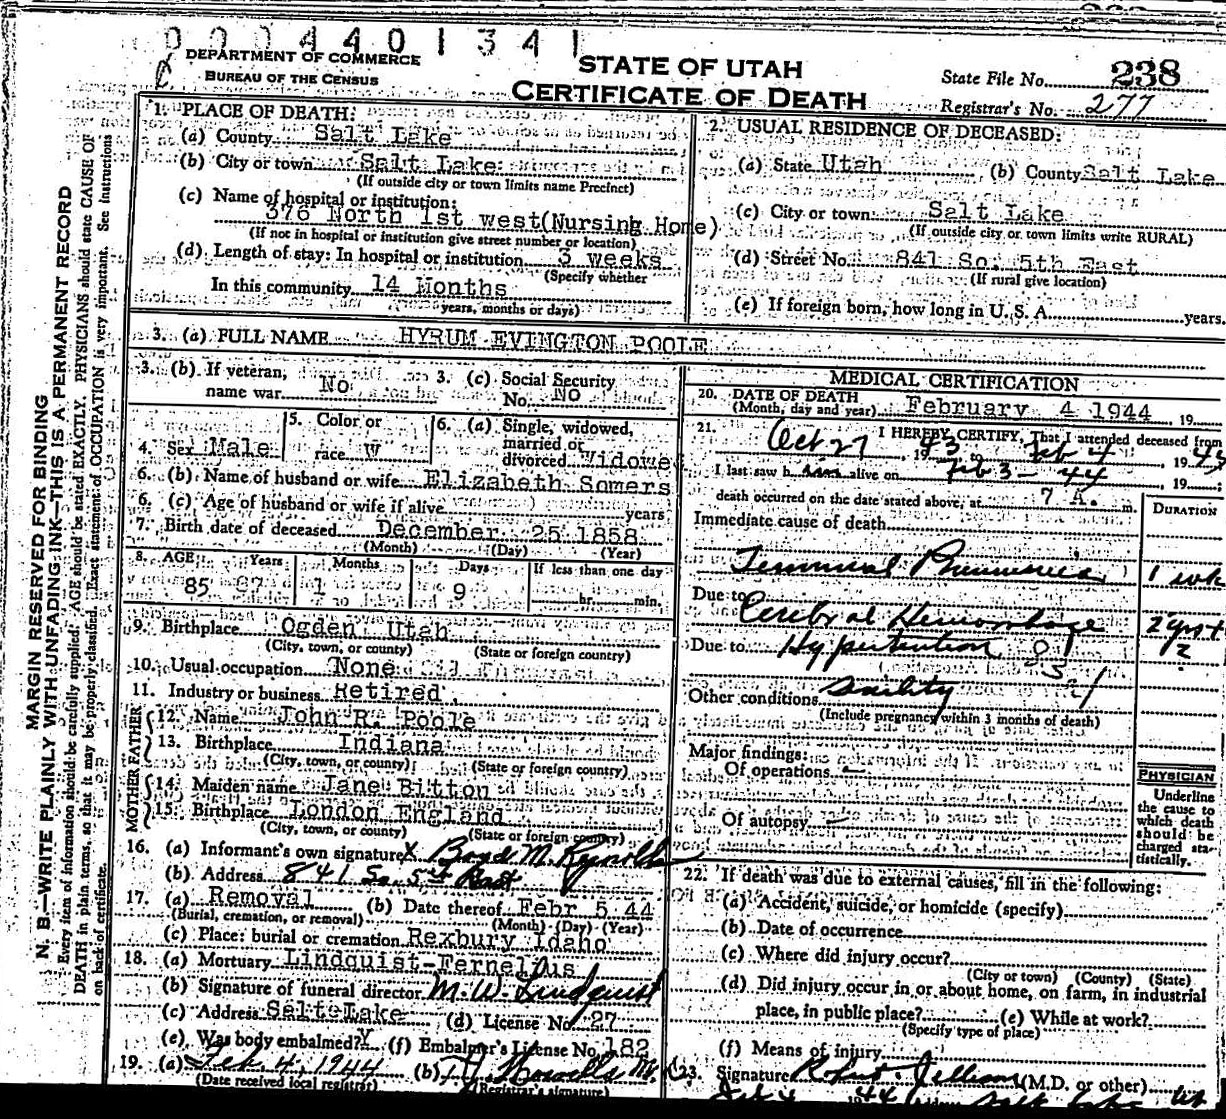 0004401341
DEPARTMENT OF COMMERCE
BUREAU OF THE CENSUS
STATE OF UTAH
CERTIFICATE OF DEATH
State File No. 238
Registrar's No. 277
MARGIN RESERVED FOR BINDING
N. B.—WRITE PLAINLY WITH UNFADING INK—THIS IS A PERMANENT RECORD
Every item of information should be carefully supplied. AGE should be stated EXACTLY. PHYSICIANS should state CAUSE OF
DEATH in plain terms, so that it may be properly classified. Exact statement of OCCUPATION is very important. See instructions
on back of certificate.
1. PLACE OF DEATH:
(a) County Salt Lake
(b) City or town Salt Lake
(If outside city or town limits name Precinct)
(c) Name of hospital or institution:
376 North 1st west(Nursing Home)
(If not in hospital or institution give street number or location)
(d) Length of stay: In hospital or institution 3 weeks
(Specify whether
In this community 14 Months
years, months or days)
2. USUAL RESIDENCE OF DECEASED:
(a) State Utah (b) County Salt Lake
(c) City or town Salt Lake
(If outside city or town limits write RURAL)
(d) Street No. 841 So. 5th East
(If rural give location)
(e) If foreign born, how long in U. S. A. years.
3. (a) FULL NAME HYRUM EVINGTON POOLE
3. (b) If veteran,
name war No
3. (c) Social Security
No. No
4. Sex Male
5. Color or
race W
6. (a) Single, widowed,
married or
divorced Widowe
6. (b) Name of husband or wife Elizabeth Somers
6. (c) Age of husband or wife if alive years
7. Birth date of deceased December 25 1858
(Month) (Day) (Year)
8. AGE Years Months Days If less than one day
85 1 9 hr. min.
9. Birthplace Ogden Utah
(City, town, or county) (State or foreign country)
10. Usual occupation None
11. Industry or business Retired
FATHER
12. Name John R. Poole
13. Birthplace Indiana
(City, town, or county) (State or foreign country)
MOTHER
14. Maiden name Jane Bitton
15. Birthplace London England
(City, town, or county) (State or foreign country)
16. (a) Informant's own signature X Boyd M. Reynolds
(b) Address 841 So. 5th East
17. (a) Removal (b) Date thereof Febr 5 44
(Burial, cremation, or removal) (Month) (Day) (Year)
(c) Place: burial or cremation Rexbury Idaho
18. (a) Mortuary Lindquist-Fernelius
(b) Signature of funeral director M. W. Lindquist
(c) Address Salt Lake (d) License No. 27
(e) Was body embalmed? Y (f) Embalmer's License No. 182
19. (a) Feb. 4, 1944 (b)
(Date received local registrar) (Registrar's signature)
MEDICAL CERTIFICATION
20. DATE OF DEATH
(Month, day and year) February 4 1944 19
21. I HEREBY CERTIFY, That I attended deceased from
Oct 27 1943 to Feb 4 19
I last saw h im alive on Feb 3 - 44 19
death occurred on the date stated above, at 7 A. m.
DURATION
Immediate cause of death
Terminal Pneumonia 1 wk
Due to
Cerebral Hemorrhage 2 yrs +
Due to Hypertension
Other conditions Senility
(Include pregnancy within 3 months of death)
Major findings:
Of operations
Of autopsy
PHYSICIAN
Underline
the cause to
which death
should be
charged sta-
tistically.
22. If death was due to external causes, fill in the following:
(a) Accident, suicide, or homicide (specify)
(b) Date of occurrence
(c) Where did injury occur?
(City or town) (County) (State)
(d) Did injury occur in or about home, on farm, in industrial
place, in public place? (e) While at work?
(Specify type of place)
(f) Means of injury
23. Signature (M.D. or other)